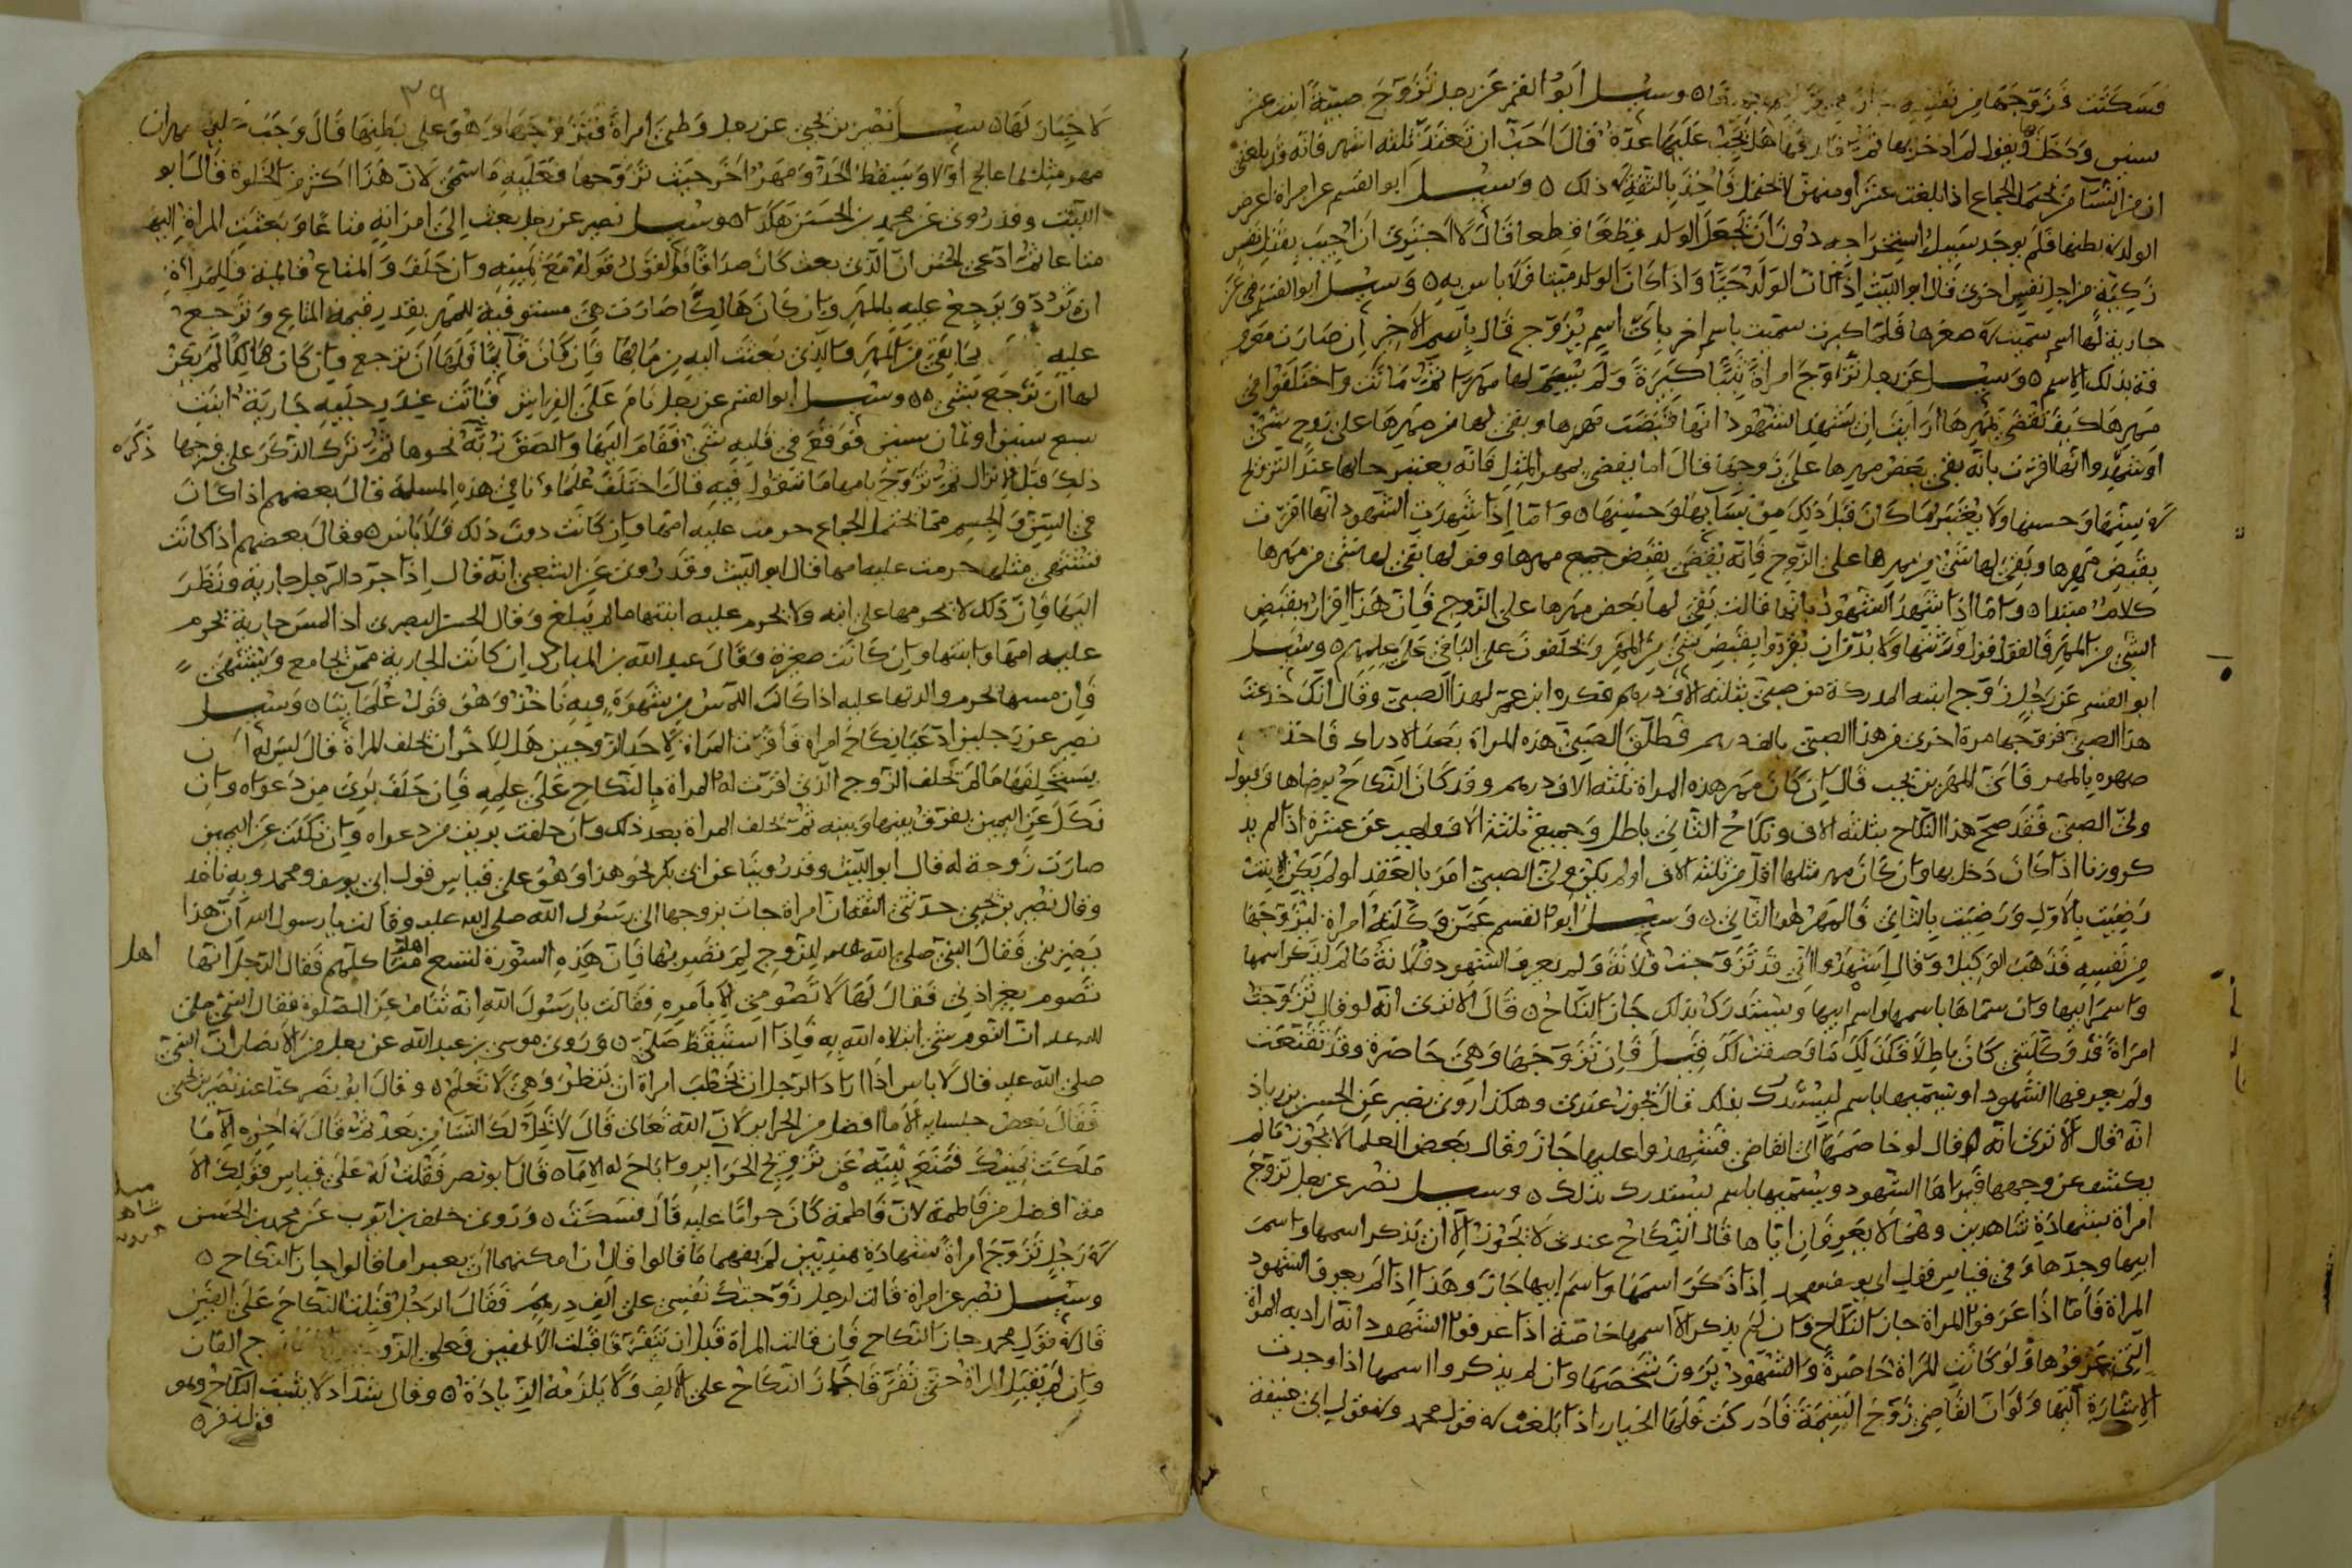 فسكتت فزوجها من نفسه وسئل ابو القسم عن رجل تزوج صبية ابنة عشر
سنين ودخل بها ويقول لم ادخل بها ثم فارقها هل يجب عليها عدة قال احب ان تعتد ثلثه اشهر فانه قد بلغنى
ان من النسا من تحتمل الجماع اذا بلغت عشرا ومنهن لا تحتمل فاخذ بالثقة فى ذلك ٥ وسئل ابو القسم عن امراة اعترض
الولد فى بطنها فلم يوجد سبيل استخراجه دون ان يجعل الولد قطعا قطعا قال لا اجترى ان اجيب بقتل نفس
زكية من اجل نفس اخرى قال ابو الليث اذا كان الولد حيا واذا كان الولد ميتا فلا باس به ٥ وسئل ابو القسم عن
جارية لها اسم سميت فى صغرها فلما كبرت سميت باسم اخر باى اسم يزوج قال باسم الاخر ان صارت معرو
فة بذلك الاسم ٥ وسئل عن رجل تزوج امراة ثيبا كبيرة ولم يسم لها مهرا ثم ماتت واختلفوا فى
مهرها كيف نقضى بمهرها ارايت ان شهد الشهود انها قبضت مهرها وبقى لها من مهرها على زوج شئ
او شهدوا انها اقرت بانه بقى بعض مهرها على زوجها قال اما يقضى بمهر المثل فانه يعتبر حالها عند التزويج
فى سنها وحسنها ولا يعتبر ما كان قبل ذلك من شبابها وحسنها ٥ واما اذا شهدت الشهود انها اقرت
بقبض مهرها وبقى لها شئ من مهرها على الزوج فانه يقضى بقبض جميع مهرها وقولها بقى لها شئ من مهرها
كلام مبتدا ٥ واما اذا شهد الشهود بانها قالت بقى لها بعض مهرها على الزوج فان هذا اقرار بقبض
الشئ من المهر فالقول قول ورثتها ولا بد من ان يقروا بقبض شئ من المهر ويحلفون على الباقى على علمهم ٥ وسئل
ابو القسم عن رجل زوج ابنته المدركة من صبى بثلثه الاف درهم فكره ابن عم لهذا الصبى وقال انك خدعت
هذا الصبى فزوجها مرة اخرى من هذا الصبى بالف درهم فطلق الصبى هذه المراة بعد الادراك فاخذ
صهره بالمهر فاى المهرين يجب قال ان كان مهر هذه المراة ثلثه الاف درهم وقد كان النكاح برضاها وقبول
ولى الصبى فقد صح هذا النكاح بثلثه الاف ونكاح الثانى باطل وجميع ثلثة الاف واجب
كروزنا اذا كان دخل بها وان كان مهر مثلها اقل من ثلثه الاف او لم يكن ولى الصبى امر بالعقد او لم يكن الابنة
رضيت بالاول ورضيت بالثانى فالمهر هو الثانى ٥ وسئل ابو القسم عمن وكلته امراة ليزوجها
من نفسه فذهب الوكيل وقال اشهدوا انى قد تزوجت فلانة ولم يعرف الشهود فلانة ما لم يذكر اسمها
واسم ابيها وان سماها باسمها واسم ابيها ويستدرك بذلك جاز النكاح ٥ قال الا ترى انه لو قال تزوجت
امراة قد وكلتنى كان باطلا فكذلك ما وصفت لك قيل فان تزوجها وهى حاضرة وقد تقنعت
ولم يعرفها الشهود او يسميها باسم يستدرك بذلك قال يجوز عندى وهكذا روى نصير عن الحسن بن زياد
انه قال الا ترى انه لو قال لو خاصمها الى القاضى فشهدوا عليها جاز وقال بعض العلما لا يجوز ما لم
يكشف عن وجهها فيراها الشهود ويسميها باسم يستدرك بذلك ٥ وسئل نصر عن رجل تزوج
امراة بشهادة شاهدين وهما لا يعرفان اياها قال النكاح عندى لا يجوز الا ان يذكر اسمها واسم
ابيها وجدها وفى قياس قول ابى يوسف ومحمد اذا ذكر اسمها واسم ابيها جاز وهذا اذا لم يعرف الشهود
المراة فاما اذا عرفوا المراة جاز النكاح وان لم يذكر الا اسمها خاصة اذا عرفوا الشهود انه اراد به المراة
التى عرفوها ولو كانت المراة حاضرة والشهود يرون شخصها وان لم يذكروا اسمها اذا وجدت
الاشارة اليها ولو ان القاضى زوج اليتيمة فادركت فلها الخيار اذا بلغت فى قول محمد وفى قول ابى حنيفة
٣٩
لا خيار لها ٥ سئل نصير بن يحيى عن رجل وطئ امراة فتزوجها وهو على بطنها قال وجب عليه مهران
مهر مثلها عالج اولا ويسقط الحد ومهر اخر حيث تزوجها فعليه ما سمى لان هذا اكثر من الخلوة قال ابو
الليث وقد روى عن محمد بن الحسن هكذا ٥ وسئل نصير عن رجل بعث الى امراته متاعا وبعثت المراة اليه
متاعا ثم ادعى الختن ان الذى بعث كان صداقا فالقول قوله مع يمينه وان حلف والمتاع قائم فللمراة
ان ترد وترجع عليه بالمهر وان كان هالكا صارت هى مستوفية للمهر بقدر قيمة المتاع وترجع
عليه بما بقى من المهر والذى بعثت اليه من مالها فان كان قائما فلها ان ترجع وان كان هالكا لم يكن
لها ان ترجع بشئ ٥٥ وسئل ابو القسم عن رجل نام على الفراش فباتت عنده جارية ابنت
سبع سنين او ثمان سنين فوقع فى قلبه شئ فقام اليها والصق ذكره نحوها ثم ترك الذكر على فرجها
ذكره
ذلك قبل الانزال ثم تزوج بامها ما تقول فيه قال اختلف علماؤنا فى هذه المسلة قال بعضهم اذا كان
فى السن والجسم مما تحتمل الجماع حرمت عليه امها وان كانت دون ذلك فلا باس ٥ وقال بعضهم اذا كانت
تشتهى مثلها حرمت عليه امها قال ابو الليث وقد روى عن الشعبى انه قال اذا جرد الرجل جارية ونظر
اليها فان ذلك لا يحرمها على ابنه ولا يحرم عليه ابنتها ما لم يبلغ وقال الحسن البصرى اذا لمس جارية تحرم
عليه امها وابنتها وان كانت صغيرة وقال عبد الله بن المبارك ان كانت الجارية ممن تجامع وتشتهى
فان مسها تحرم والدتها عليه اذا كان اللمس من شهوة وبه ناخذ وهو قول علمائنا ٥ وسئل
نصير عن رجلين ادعيا نكاح امراة فاقرت المراة لاحد الزوجين هل للاخر ان يحلف المراة قال ليس له ان
يستحلفها ما لم يحلف الزوج الذى اقرت له المراة بالنكاح على علمه فان حلف برئ من دعواه وان
نكل عن اليمين يفرق بينها وبينه ثم تحلف المراة بعد ذلك وان حلفت بريت من دعواه وان نكلت عن اليمين
صارت زوجة له قال ابو الليث وقد روينا عن ابى بكر نحو هذا وهو على قياس قول ابى يوسف ومحمد وبه ناخذ
وقال نصير بن يحيى حدثنى الثقة ان امراة جات بزوجها الى رسول الله صلى الله عليه وقالت يا رسول الله ان هذا
يضربنى فقال النبى صلى الله عليه للزوج لم تضربها فان هذه السورة لتسع اهل منى كلهم فقال الرجل انها
اهل
تصوم بغير اذنى فقال لها لا تصومى الا بامره فقالت يا رسول الله انه ينام عن الصلوة فقال النبى صلى
الله عليه ان النوم شئ ابتلاه الله به فاذا استيقظ صلى ٥ وروى موسى بن عبد الله عن رجل من الانصار ان النبى
صلى الله عليه قال لا باس اذا اراد الرجل ان يخطب امراة ان ينظر وهى لا تعلم ٥ وقال ابو نصر كنا عند نصير بن يحيى
فقال بعض جلسايه الاما افضل من الحراير لان الله تعالى قال لا تحل لك النسا من بعد ثم قال فى اخره الا ما
ملكت يمينك فمنع نبيه عن تزويج الحراير واباح له الاما ٥ قال ابو نصر فقلت له على قياس قولك الا
مة افضل من فاطمة لان فاطمة كان حراما عليه قال فسكت ٥ وروى خلف بن ايوب عن محمد بن الحسن
فى رجل تزوج امراة بشهادة هنديين لم يفهما ما قالوا قال ان امكنهما ان يعبرا ما قالوا جاز النكاح ٥
وسئل نصر عن امراة قالت لرجل زوجتك نفسى على الف درهم فقال الرجل قبلت النكاح على الفين
قال فى قول محمد جاز النكاح فان قالت المراة قبل ان يتفرقا قبلت الالفين فعلى الزوج الفان
وان لم تقبل المراة حتى تفرقا جاز النكاح على الالف ولا يلزمه الزيادة ٥ وقال شداد لا يثبت النكاح وهو
قول زفر ٥